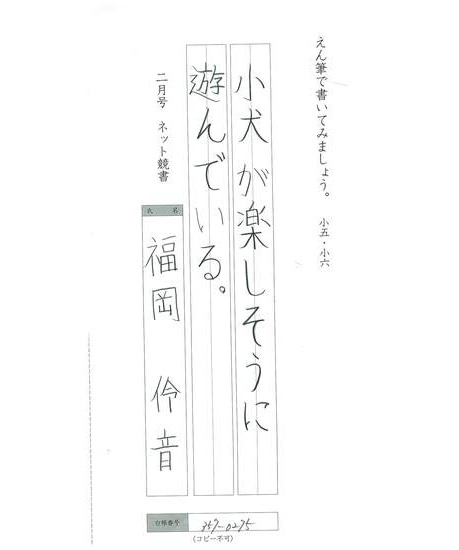 えん筆で書いてみましょう。 小五・小六
小犬が楽しそうに
遊んでいる。
二月号 ネット競書
氏 名
福岡 伶音
台帳番号
357-0275
(コピー不可)